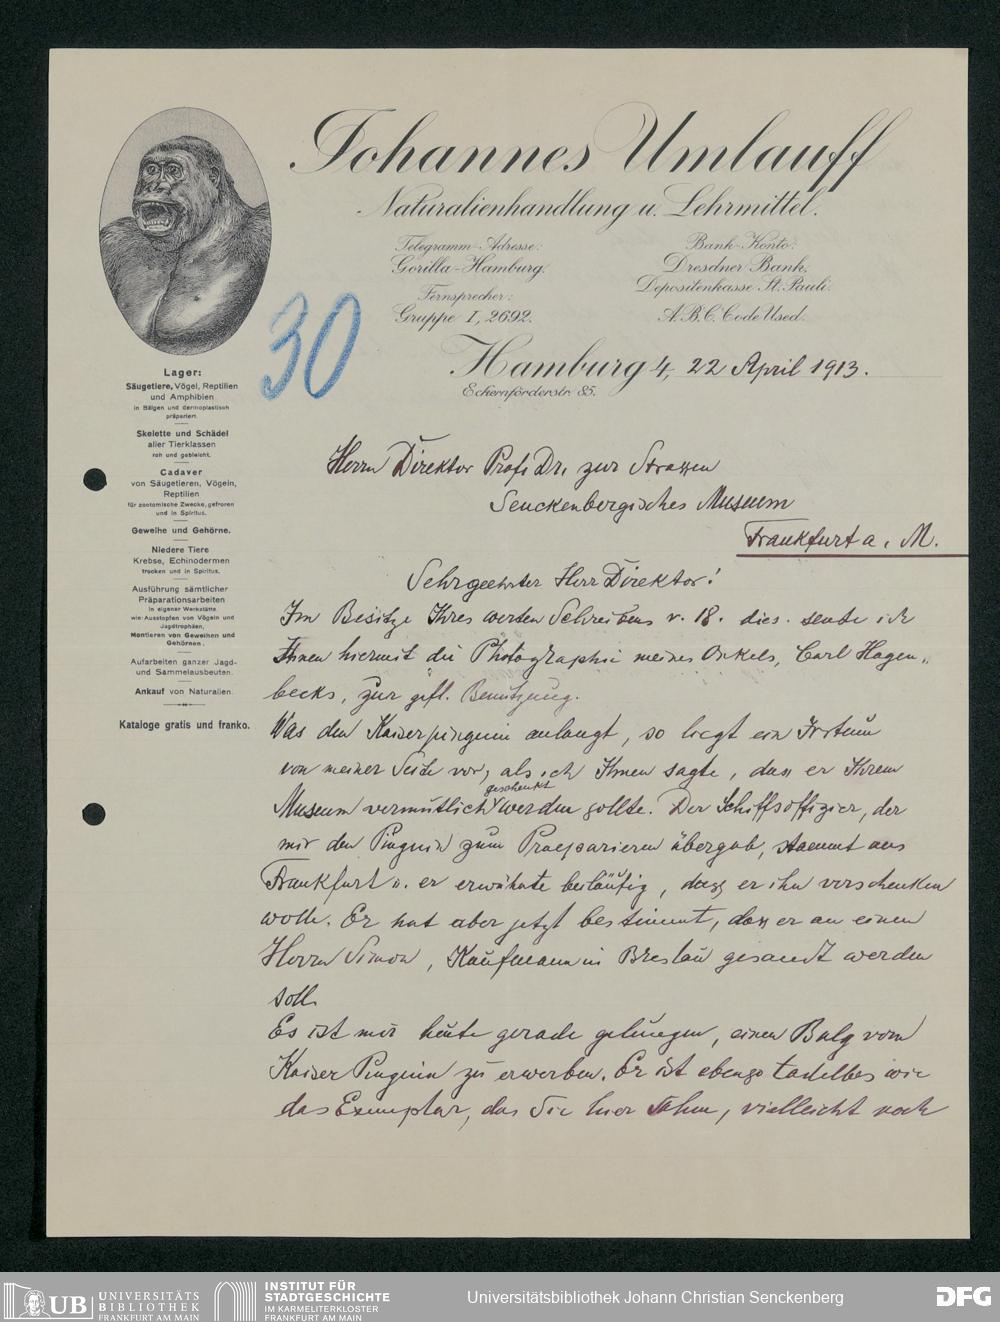 Johannes Umlauff
Naturalienhandlung u. Lehrmittel.
Telegramm-Adresse:
Gorilla-Hamburg.
Fernsprecher:
Gruppe I, 2692.
Bank-Konto:
Dresdner Bank.
Depositenkasse St. Pauli.
A.B.C. Code Used.
30
Hamburg 4, 22 April 1913.
Eckernförderstr. 85.
Lager:
Säugetiere, Vögel, Reptilien
und Amphibien
in Bälgen und dermoplastisch
präpariert.
Skelette und Schädel
aller Tierklassen
roh und gebleicht.
Cadaver
von Säugetieren, Vögeln,
Reptilien
für zootomische Zwecke, gefroren
und in Spiritus.
Geweihe und Gehörne.
Niedere Tiere
Krebse, Echinodermen
trocken und in Spiritus.
Ausführung sämtlicher
Präparationsarbeiten
in eigener Werkstätte
wie: Ausstopfen von Vögeln und
Jagdtrophäen,
Montieren von Geweihen und
Gehörnen.
Aufarbeiten ganzer Jagd-
und Sammelausbeuten.
Ankauf von Naturalien.
Kataloge gratis und franko.
Herrn Direktor Prof. Dr. zur Strassen
Senckenbergisches Museum
Frankfurt a. M.
Sehrgeehrter Herr Direktor!
Im Besitze Ihres werten Schreibens v. 18. dies. sende ich
Ihnen hiermit die Photographie meines Onkels, Carl Hagen-
becks, zur gefl. Benützung.
Was den Kaiserpinguin anlangt, so liegt ein Irrtum
von meiner Seite vor, als ich Ihnen sagte, dass er Ihrem
Museum vermutlich geschenkt werden sollte. Der Schiffsoffizier, der
mir den Pinguin zum Praeparieren übergab, stammt aus
Frankfurt u. er erwähnte beiläufig, dass er ihn verschenken
wolle. Er hat aber jetzt bestimmt, dass er an einen
Herrn Simon, Kaufmann in Breslau gesandt werden
soll.
Es ist mir heute gerade gelungen, einen Balg vom
Kaiser Pinguin zu erwerben. Er ist ebenso tadellos wie
das Exemplar, das Sie hier sahen, vielleicht noch
UB UNIVERSITÄTS
BIBLIOTHEK
FRANKFURT AM MAIN
INSTITUT FÜR
STADTGESCHICHTE
IM KARMELITERKLOSTER
FRANKFURT AM MAIN
Universitätsbibliothek Johann Christian Senckenberg
DFG